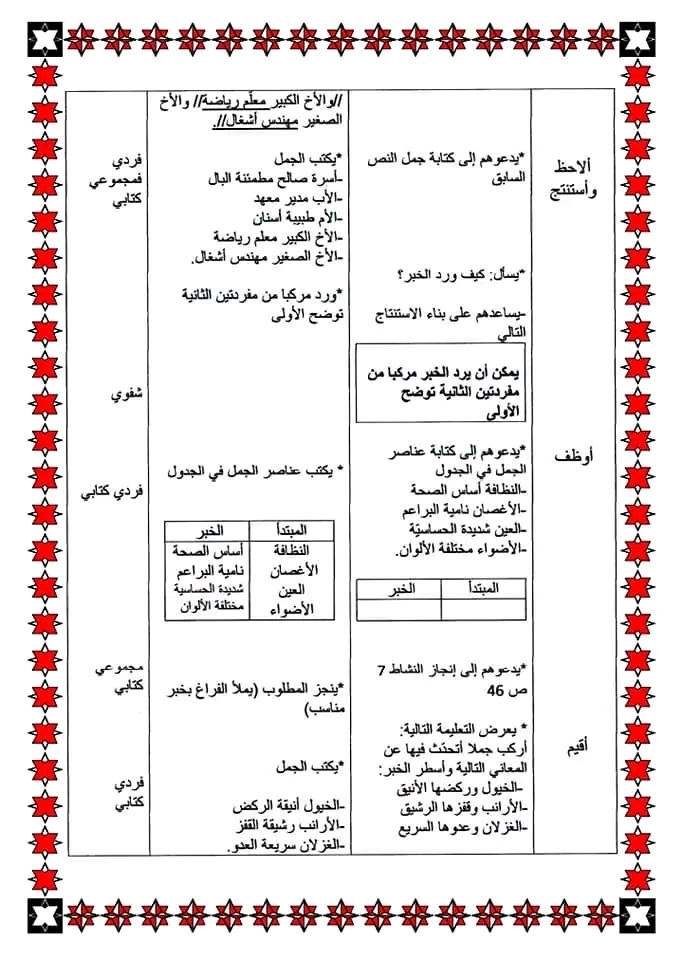 //والأخ الكبير معلّم رياضة// والأخ
الصغير مهندس أشغال//.
ألاحظ
وأستنتج
*يدعوهم إلى كتابة جمل النص
السابق
*يكتب الجمل
-أسرة صالح مطمئنة البال
-الأب مدير معهد
-الأم طبيبة أسنان
-الأخ الكبير معلم رياضة
-الأخ الصغير مهندس أشغال.
فردي
فمجموعي
كتابي
*يسأل: كيف ورد الخبر؟
*ورد مركبا من مفردتين الثانية
توضح الأولى
-يساعدهم على بناء الاستنتاج
التالي
يمكن أن يرد الخبر مركبا من
مفردتين الثانية توضح
الأولى
شفوي
أوظف
*يدعوهم إلى كتابة عناصر
الجمل في الجدول
-النظافة أساس الصحة
-الأغصان نامية البراعم
-العين شديدة الحساسيّة
-الأضواء مختلفة الألوان.
المبتدأ الخبر
* يكتب عناصر الجمل في الجدول
المبتدأ الخبر
النظافة أساس الصحة
الأغصان نامية البراعم
العين شديدة الحساسية
الأضواء مختلفة الألوان
فردي كتابي
*يدعوهم إلى إنجاز النشاط 7
ص 46
*ينجز المطلوب (يملأ الفراغ بخبر
مناسب)
مجموعي
كتابي
أقيم
* يعرض التعليمة التالية:
أركب جملا أتحدّث فيها عن
المعاني التالية وأسطر الخبر:
-الخيول وركضها الأنيق
-الأرانب وقفزها الرشيق
-الغزلان وعدوها السريع
*يكتب الجمل
-الخيول أنيقة الركض
-الأرانب رشيقة القفز
-الغزلان سريعة العدو.
فردي
كتابي